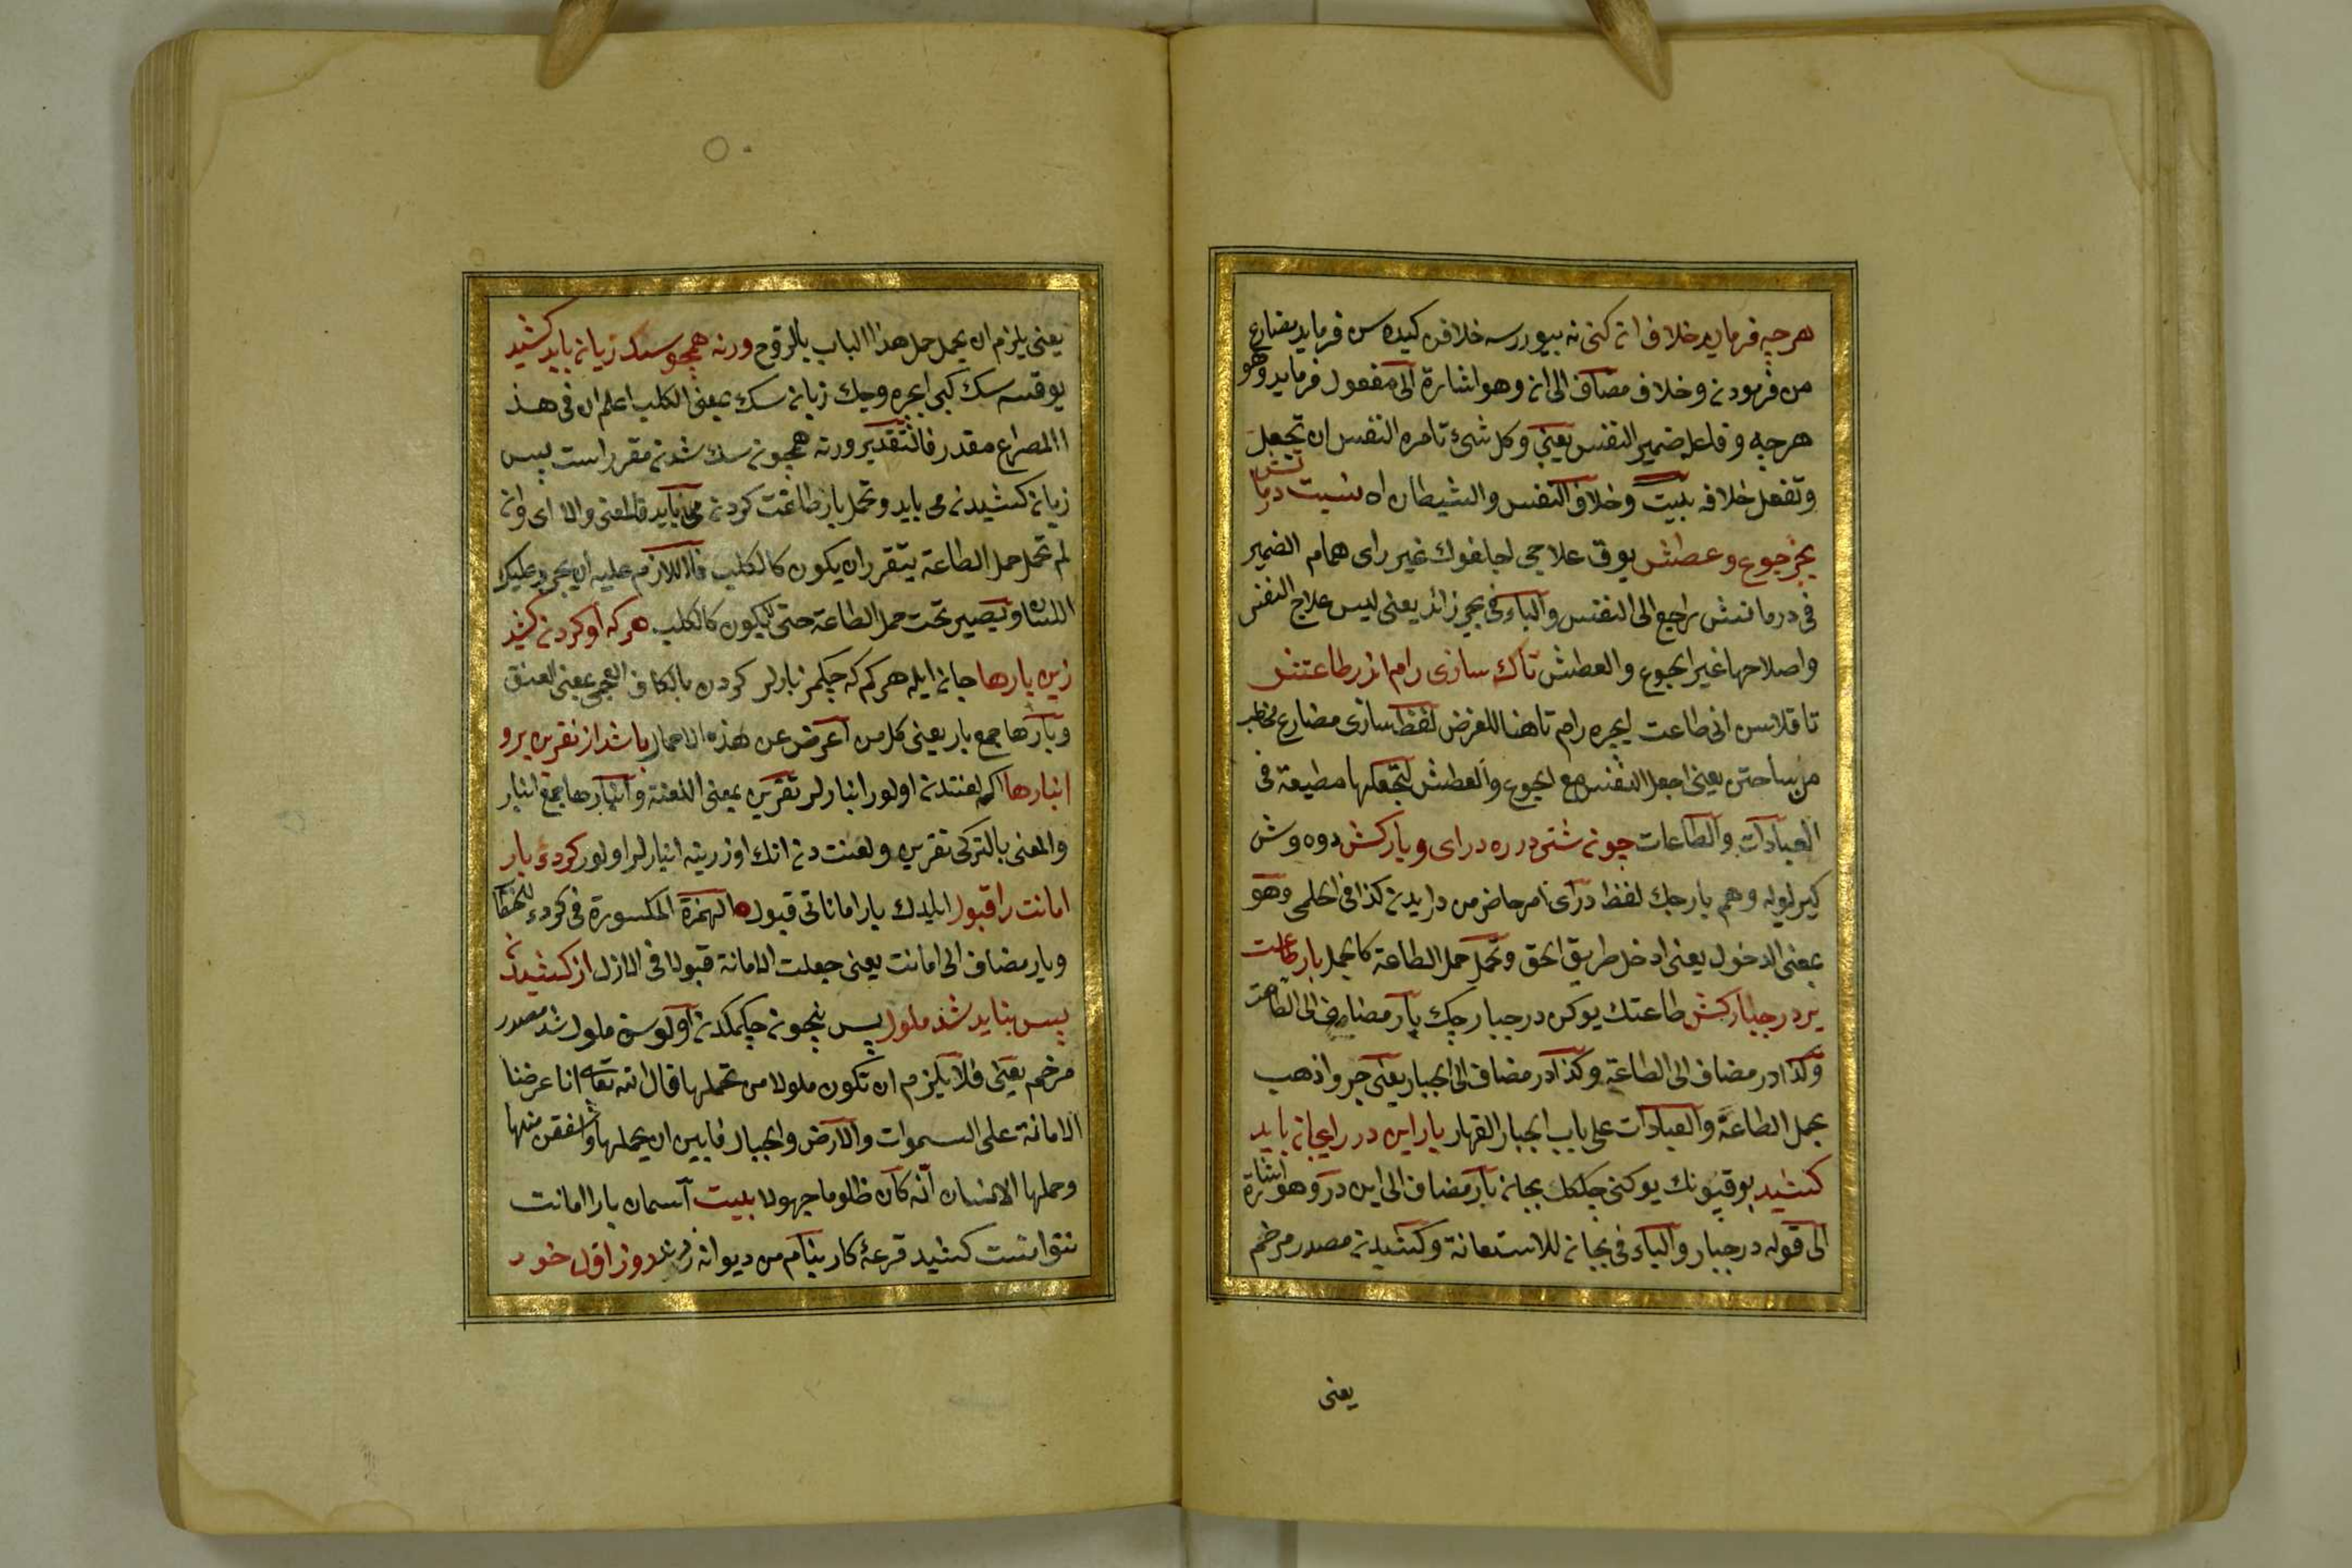 هرچه فرماید خلاف انه کنی نه بیوررسه خلافن کیده سن فرماید مضارع
من فرمودنه و خلاف مضاف الی انه وهو اشارة الی مفعول فرماید وهو
هرچه و فاعل ضمیر النفس یعنی وکل شیء تامره النفس ان تجعل
وتفعل خلافه بیت وخلاف النفس والشیطان اه نیست درمانش
بجز جوع و عطش یوق علاجی اجلغوك غیر رای همام الضمیر
فی درمانش راجع الی النفس والباء فی بجز زائد یعنی لیس علاج النفس
واصلاحها غیر الجوع والعطش تاك سازی رام اندر طاعتش
تا قلاسن انی طاعت ایچره رام تا هنا للغرض لفظ سازی مضارع مخاطب
من ساختن یعنی اجعل النفس مع الجوع والعطش لتجعلها مطیعة فی
العبادات والطاعات چونه شتر درره درای و بارکش دوه وش
کیر یوله وهم بار چك لفظ درای امر حاضر من درایدنه کذا فی الحلمی وهو
بمعنی الدخول یعنی ادخل طریق الحق وتحمل حمل الطاعة کما یحمل بار طاعت
بر در جبار کش طاعتك یوکن در جبار چك بار مضاف الی الطاعت
وکذا در مضاف الی الطاعة وکذا در مضاف الی الجبار یعنی جر واذهب
بحمل الطاعة والعبادات علی باب الجبار القهار بار این در رابجانه باید
کشید بو قپونك یوکنی چکك بجانه بار مضاف الی این در وهو اشارة
الی قوله در جبار والباء فی بجانه للاستعانة وکشیدنه مصدر مرخم
یعنی
یعنی یلزم ان یحمل حمل هذا الباب بالروح ورنه همچو سك زیانه باید کشید
یوقسه سك کبی ایچره وچك زیانه سك بمعنی الکلب اعلم ان فی هذ
االمصراع مقدر فالتقدیر ورنه همچونه سك شدنه مقرر است پس
زیانه کشیدنه می باید وتحمل بار طاعت کردنه می باید فالمعنی والا ای وانه
لم تحمل حمل الطاعة یتقرر ان یکون کالکلب فاللازم علیه ان یجر علیك
اللسان ویصیر تحت حمل الطاعة حتی لایکون کالکلب هرکه او کردنه کشد
زین بارها جانه ایله هرکم که چکمز بارلر کردن بالکاف العجمی بمعنی العنق
وبارها جمع بار یعنی کل من اعرض عن هذه الاحمال باشد از نفرین برو
انبارها اکه لعنتدنه اولور انبارلر نفرین بمعنی اللعنة وانبارها جمع انبار
والمعنی بالترکی نفرین ولعنت دنه انك اوزرینه انبارلر اولور کردۀ بار
امانت را قبول ایلیدك بار امانانی قبول الهمزة المکسورة فی کردۀ للخطاب
وبار مضاف الی امانت یعنی جعلت الامانة قبولا فی الازل از کشیدنه
پس بناید شد ملول پس نچونه چکمکدنه اولوسن ملول شد مصدر
مرخم یعنی فلا یلزم ان تکون ملولا من تحملها قال الله تعالی انا عرضنا
الامانة علی السموات والارض والجبال فابین ان یحملها واشفقن منها
وحملها الانسان انّه کان ظلوما جهولا بیت آسمان بار امانت
نتوانست کشید قرعۀ کار بنام من دیوانه زدند روز اول خود